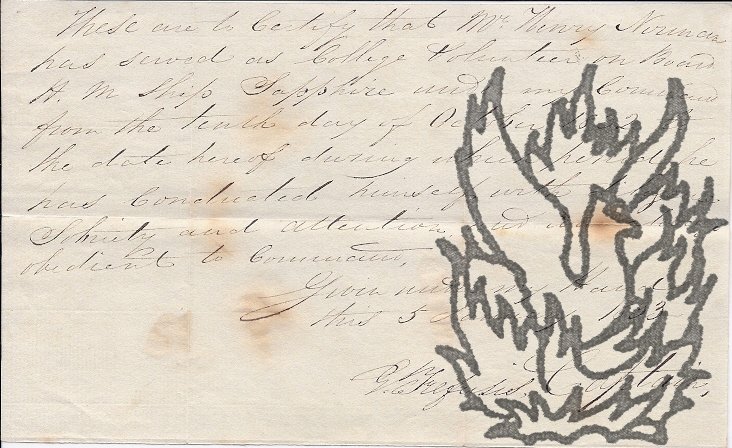 These are to Certify that Mr Henry Norman
has served as College Volunteer on Board
H. M Ship Sapphire under my Command
from the tenth day of October
the date hereof during which period he
has Conducted himself with
Sobriety and attention, and
obedient to Command,
Given under my Hand
this 5
Captain,